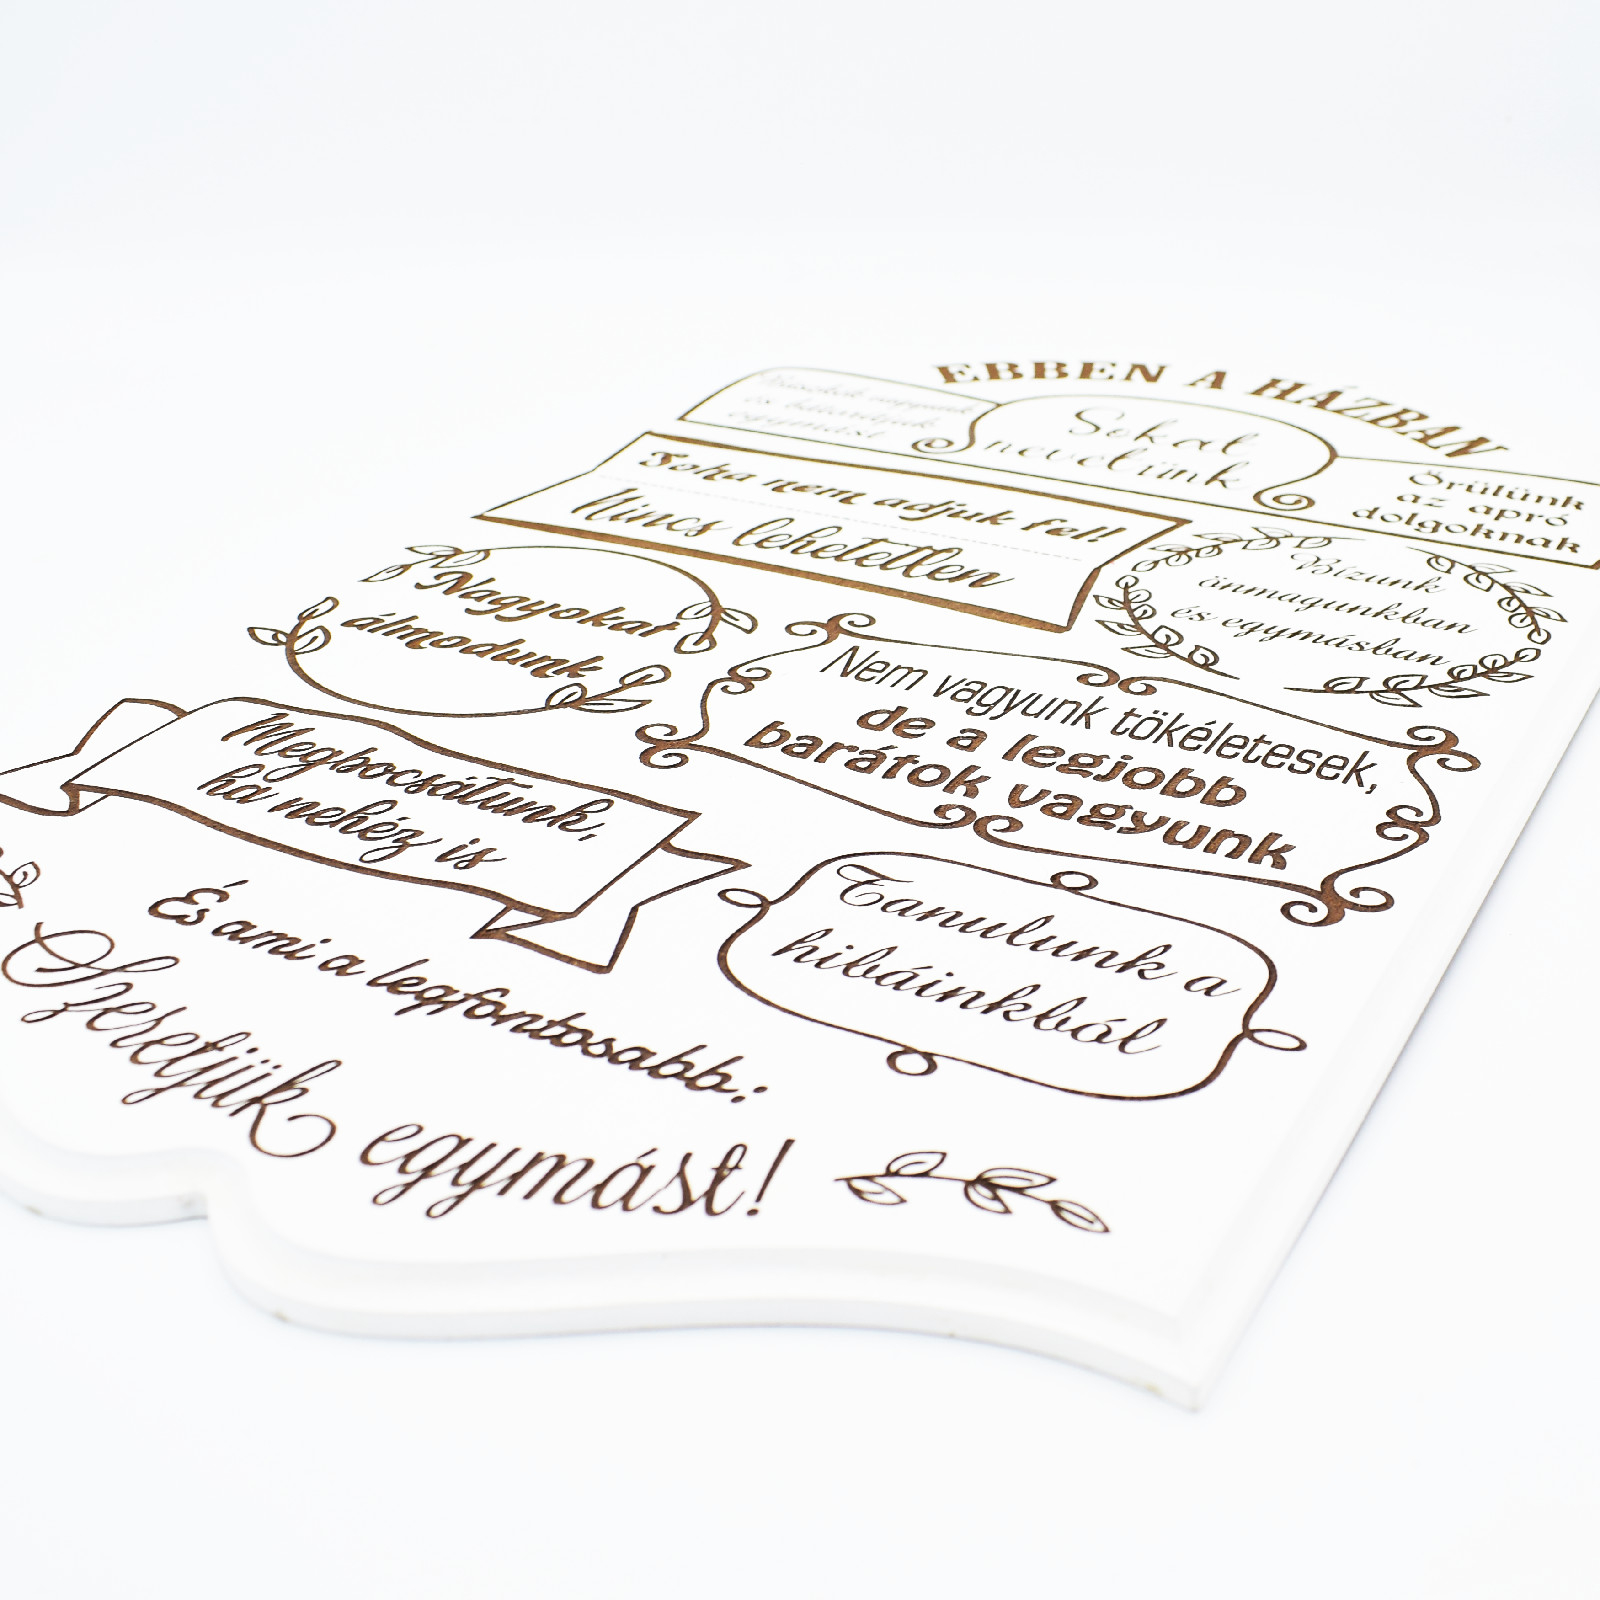 EBBEN A HÁZBAN
és bátorítjuk
egymást
Sokat
nevetünk
Örülünk
az apró
dolgoknak
Soha nem adjuk fel!
Nincs lehetetlen
Bízunk
önmagunkban
és egymásban
Nagyokat
álmodunk
Nem vagyunk tökéletesek,
de a legjobb
barátok vagyunk
Megbocsátunk,
ha nehéz is
Tanulunk a
hibáinkból
És ami a legfontosabb:
Szeretjük egymást!